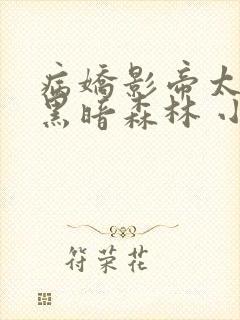 病嬌影帝太
黑暗森林 小
符荣花